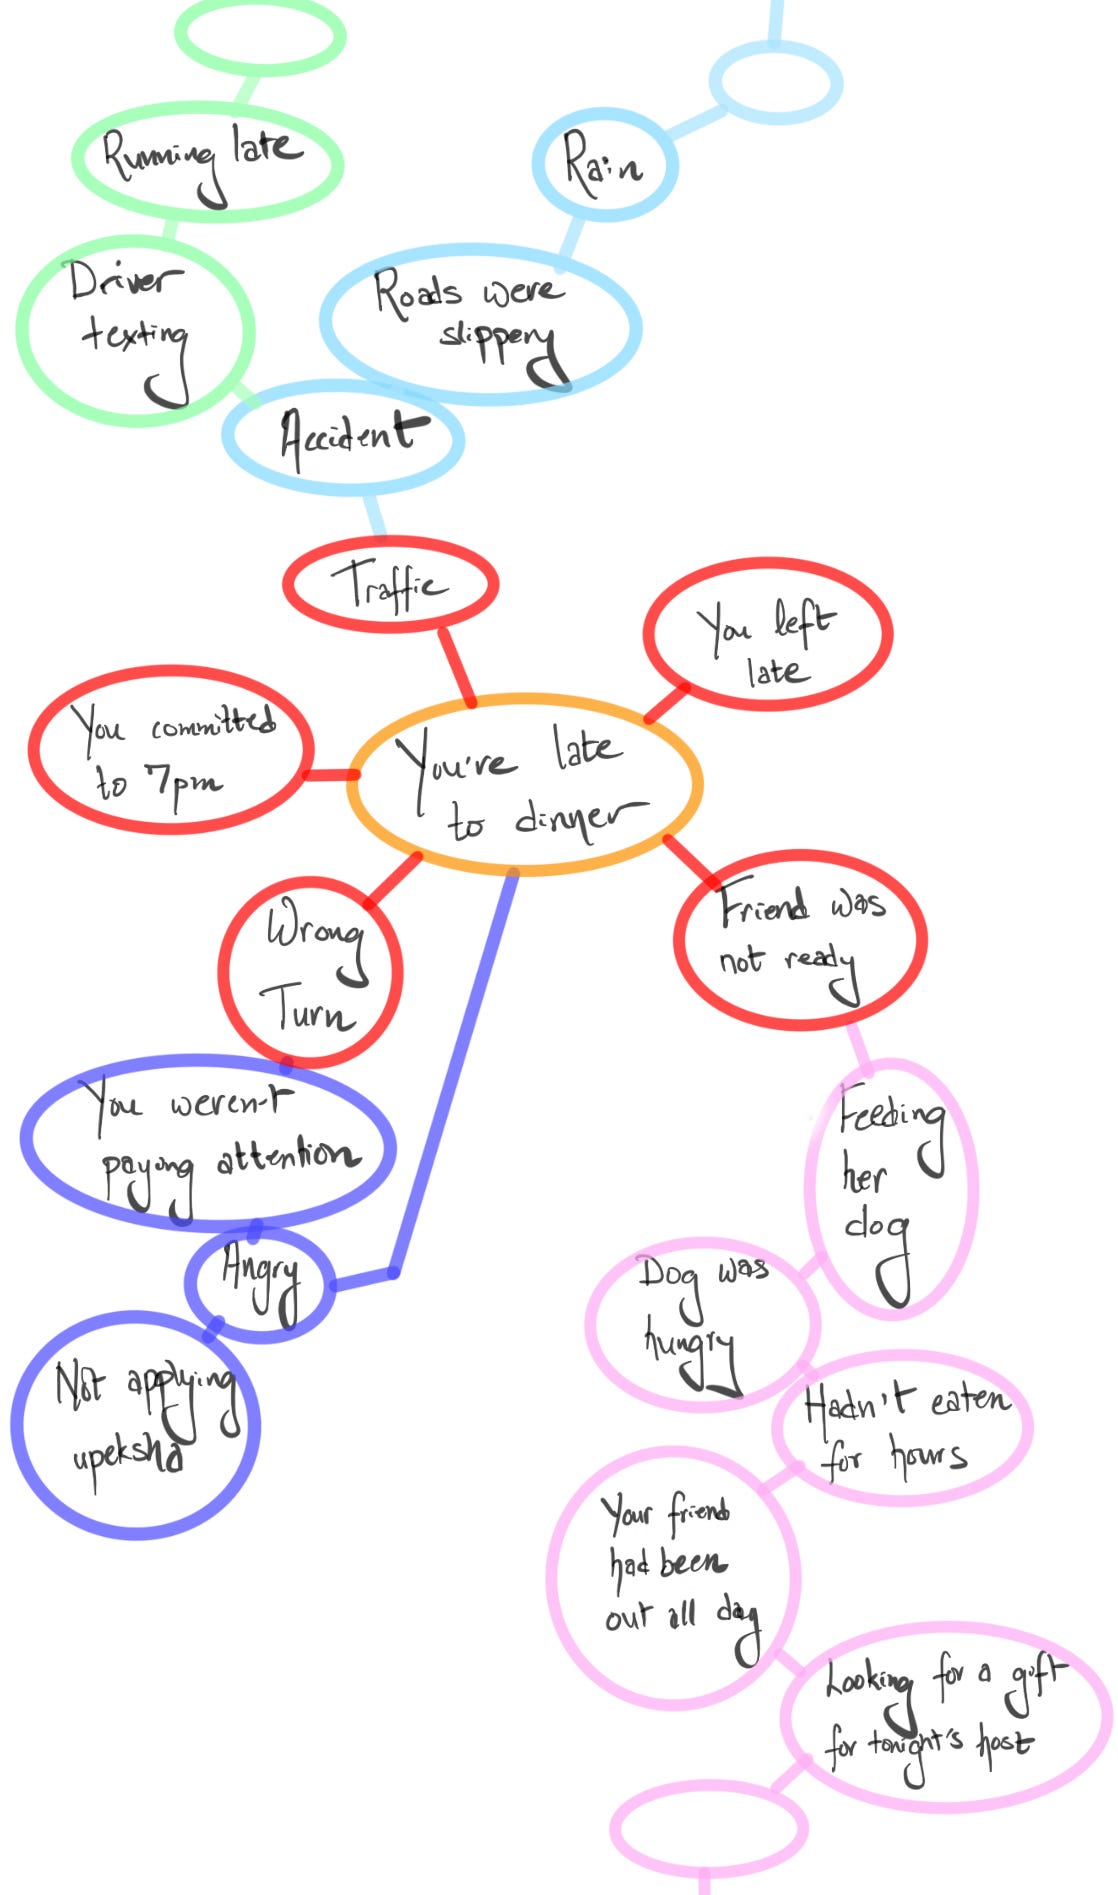 Running late
Rain
Driver
texting
Roads were
slippery
Accident
Traffic
You left
late
You committed
to 7pm
You're late
to dinner
Wrong
Turn
Friend was
not ready
You weren't
paying attention
Feeding
her
dog
Angry
Dog was
hungry
Not applying
upeksha
Hadn't eaten
for hours
Your friend
had been
out all day
Looking for a gift
for tonight's host